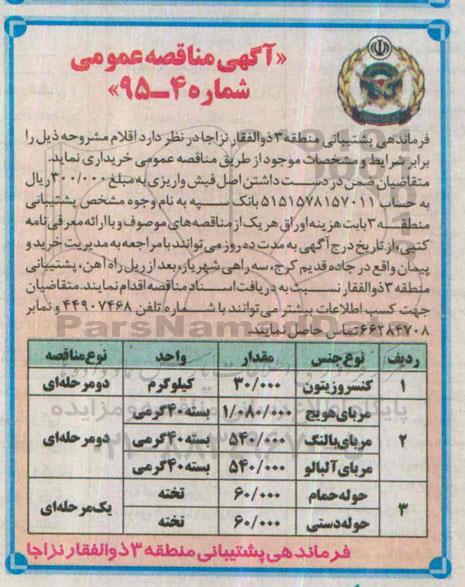 «آگهی مناقصه عمومی
شماره ۴ـ۹۵»
فرماندهی پشتیبانی منطقه ۳ ذوالفقار نزاجا در نظر دارد اقلام مشروحه ذیل را
برابر شرایط و مشخصات موجود از طریق مناقصه عمومی خریداری نماید.
متقاضیان ضمن در دست داشتن اصل فیش واریزی به مبلغ ۳۰۰/۰۰۰ ریال
به حساب ۵۱۵۱۵۷۸۱۵۷۰۱۱ بانک سپه به نام وجوه مخصص پشتیبانی
منطقه ۳ بابت هزینه اوراق هر یک از مناقصه‌های موصوف و با ارائه معرفی‌نامه
کتبی، از تاریخ درج آگهی به مدت ده روز می‌توانند با مراجعه به مدیریت خرید و
پیمان واقع در جاده قدیم کرج، سه راهی شهریار، بعد از ریل راه آهن، پشتیبانی
منطقه ۳ ذوالفقار نسبت به دریافت اسناد مناقصه اقدام نمایند. متقاضیان
جهت کسب اطلاعات بیشتر می‌توانند با شماره تلفن ۴۴۹۰۷۴۶۸ و نمابر
۶۶۲۸۴۷۰۸ تماس حاصل نمایند.
ردیف نوع جنس مقدار واحد نوع مناقصه
۱ کنسرو زیتون ۳۰/۰۰۰ کیلوگرم دومرحله‌ای
۲ مربای هویج ۱/۰۸۰/۰۰۰ بسته ۴۰ گرمی دومرحله‌ای
مربای بالنگ ۵۴۰/۰۰۰ بسته ۴۰ گرمی
مربای آلبالو ۵۴۰/۰۰۰ بسته ۴۰ گرمی
۳ حوله حمام ۶۰/۰۰۰ تخته یک‌مرحله‌ای
حوله دستی ۶۰/۰۰۰ تخته
فرماندهی پشتیبانی منطقه ۳ ذوالفقار نزاجا